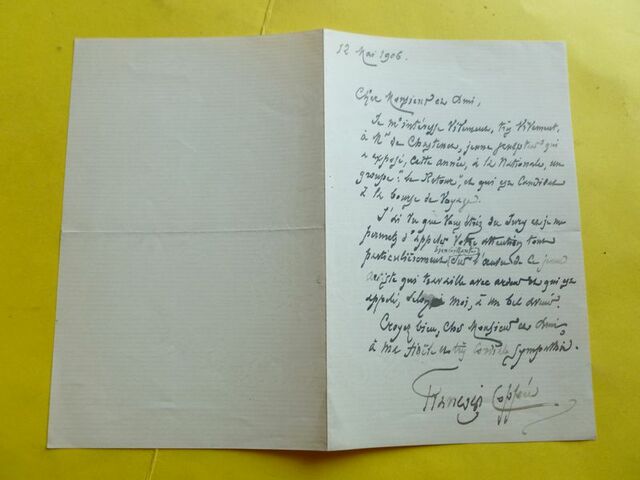 12 Mai 1906.
Cher Monsieur et Ami,
Je m'intéresse vivement, très vivement,
à Mr de Chastenet, jeune sculpteur qui
a exposé, cette année, à la Nationale, un
groupe "Le Retour", et qui est candidat
à la Bourse de Voyage.
J'ai vu que vous étiez du Jury et je me
permets d'appeler votre attention toute
particulièrement sur l'œuvre de ce jeune
artiste qui travaille avec ardeur et qui est
appelé, selon moi, à un bel avenir.
Croyez bien, cher Monsieur et Ami,
à ma fidèle et très cordiale sympathie.
François Coppée